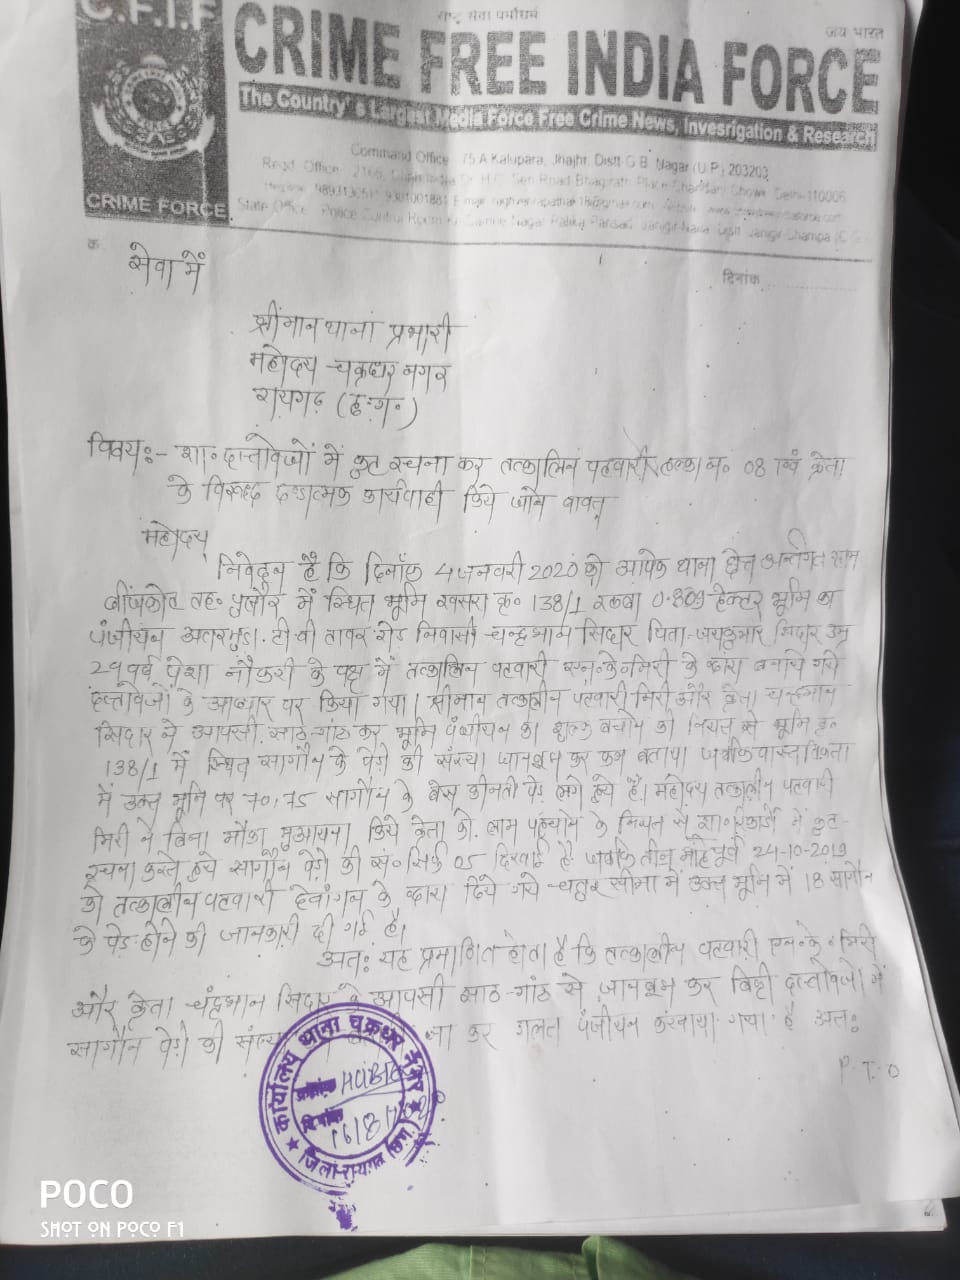 C.F.I.F
राष्ट्र सेवा पर्मोधर्म
जय भारत
CRIME FREE INDIA FORCE
The Country's Largest Media Force Free Crime News, Invesrigation & Research
Command Office 75 A Kalupara, Jhajhr, Distt G.B. Nagar (U.P.) 203203
CRIME FORCE
दिनांक
सेवा में
श्रीमान थाना प्रभारी
महोदय चक्रधर नगर
रायगढ़ (छ.ग.)
विषय:- शा. दस्तावेजों में कुट रचना कर तत्कालिन पटवारी हल्का न. 08 एवं क्रेता
के विरूध्द दण्डात्मक कार्यवाही किये जाने बाबत्
महोदय
निवेदन है कि दिनाँक 4 जनवरी 2020 को आपके थाना क्षेत्र अन्तर्गत ग्राम
तह. पुसौर में स्थित भूमि खसरा क्र. 138/1 रकबा 0.809 हेक्टर भूमि का
पंजीयन अतरमुड़ा टी वी टावर रोड निवासी चन्द्रभान सिदार पिता जयकुमार सिदार उम्र
29 वर्ष पेशा नौकरी के पक्ष में तत्कालिन पटवारी एन.के. मिरी के द्वारा बनाये गये
दस्तावेजों के आधार पर किया गया। श्रीमान तत्कालीन पटवारी मिरी और क्रेता चन्द्रभान
सिदार ने आपसी साठ-गांठ कर भूमि पंजीयन का शुल्क बचाने की नियत से भूमि क्र.
138/1 में स्थित सागौन के पेड़ो की संख्या जानबूझ कर कम बताया जबकि वास्तविकता
में उक्त भूमि पर 70,75 सागौन के बेस कीमती पेड़ लगे हुये है। महोदय तत्कालीन पटवारी
मिरी ने बिना मौका मुआयना किये क्रेता को लाभ पहुचाने के नियत से शा. रिकार्डो में कुट-
रचना करते हुये सागौन पेड़ो की सं. सिर्फ 05 दिखाई है जबकि तीन माह पूर्व 24-10-2019
को तत्कालीन पटवारी देवांगन के द्वारा दिये गये चतुर सीमा में उक्त भूमि में 18 सागौन
के पेड़ होने की जानकारी दी गई है।
अत: यह प्रमाणित होता है कि तत्कालीन पटवारी एन.के. मिरी
और क्रेता चंद्रभान सिदार के आपसी साठ-गांठ से जानबूझ कर बिक्री दस्तावेजो में
सागौन पेड़ो की कर गलत पंजीयन करवाया गया है अत:
P.T.O
कार्यालय थाना चक्रधर नगर
दिनांक
जिला-रायगढ़ (छ.ग.)
POCO
SHOT ON POCO F1